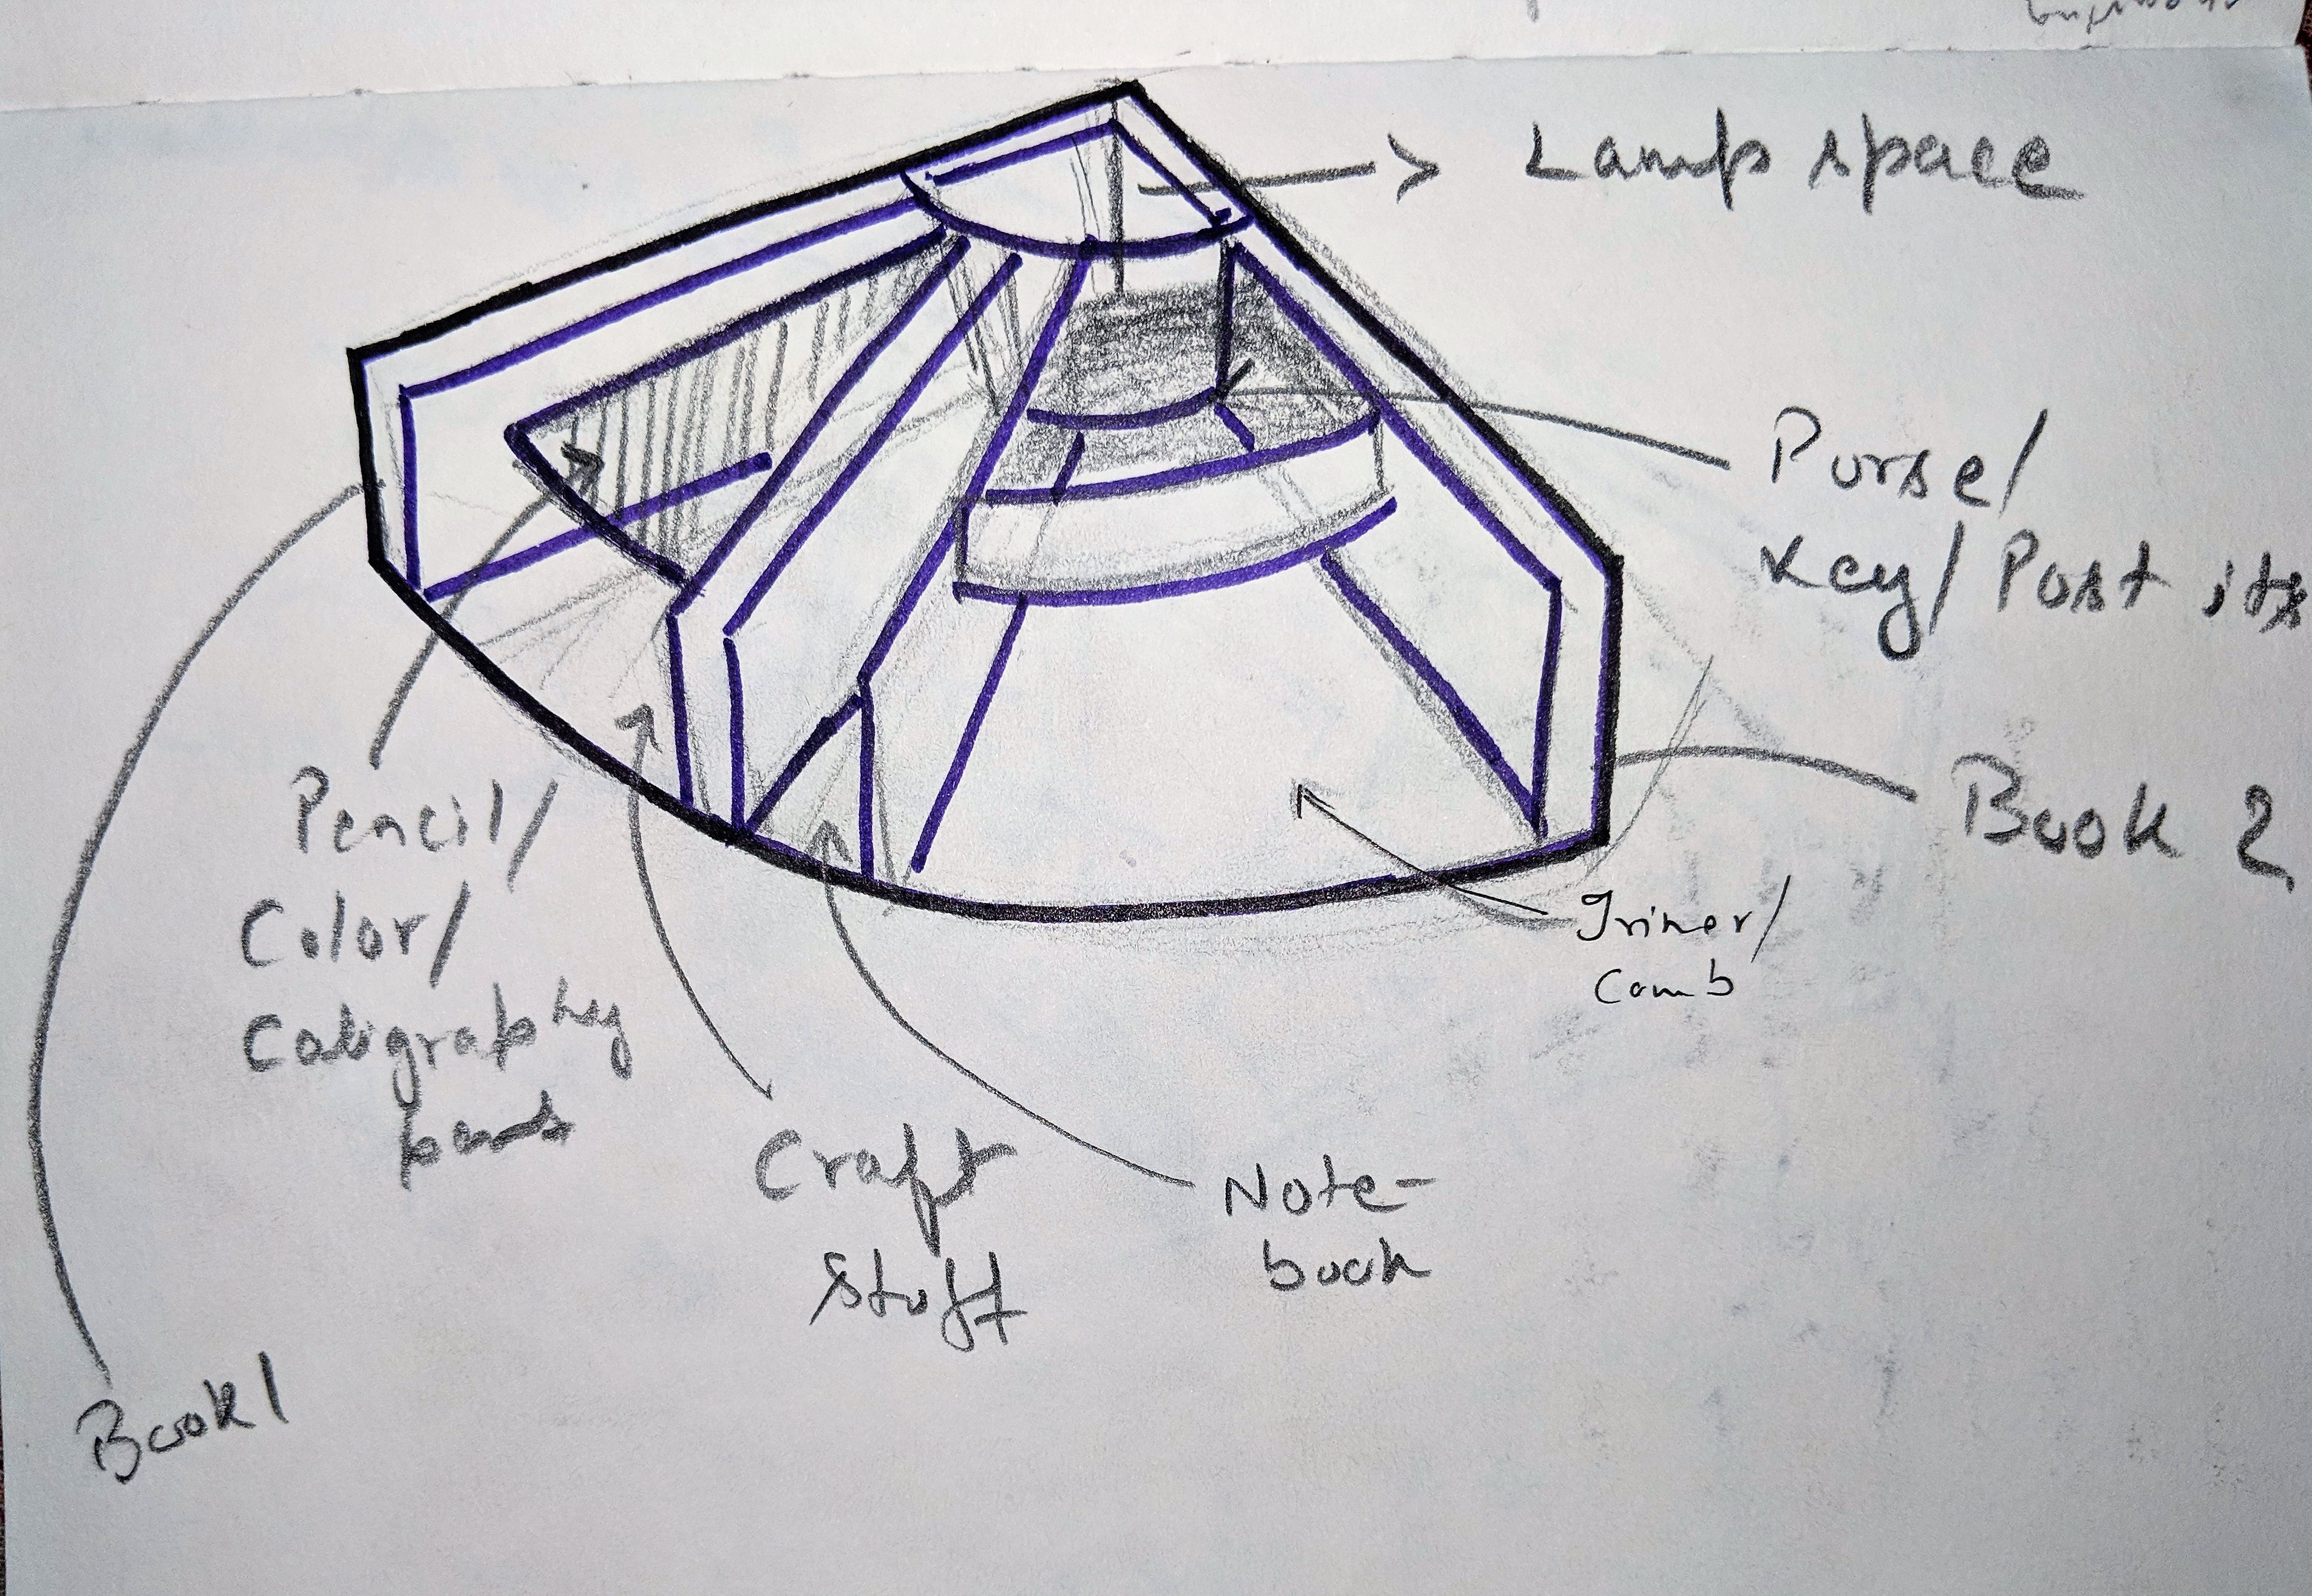 Lamp space
Purse/
Key/Post its
Book 2
Trimer/
Comb
Pencil/
Color/
Caligraphy
Craft
stuff
Note-
book
Book 1